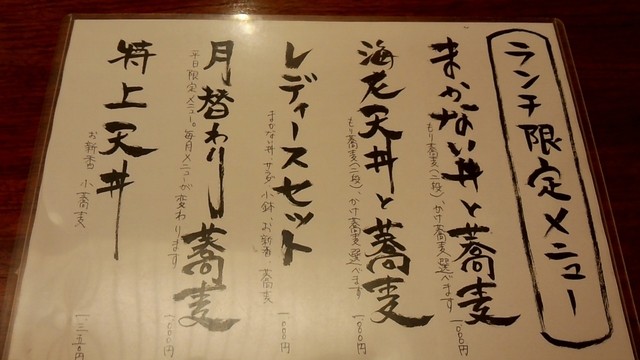 ランチ限定メニュー
まかない丼と蕎麦
もり蕎麦(二段)、かけ蕎麦選べます
一〇〇〇円
海老天丼と蕎麦
もり蕎麦(二段)、かけ蕎麦選べます
一〇〇〇円
レディースセット
まかない丼、サラダ、小鉢、お新香、蕎麦
一〇〇〇円
月替わり蕎麦
平日限定メニュー。毎月メニューが変わります
一〇〇〇円
特上天丼
お新香 小蕎麦
一三五〇円